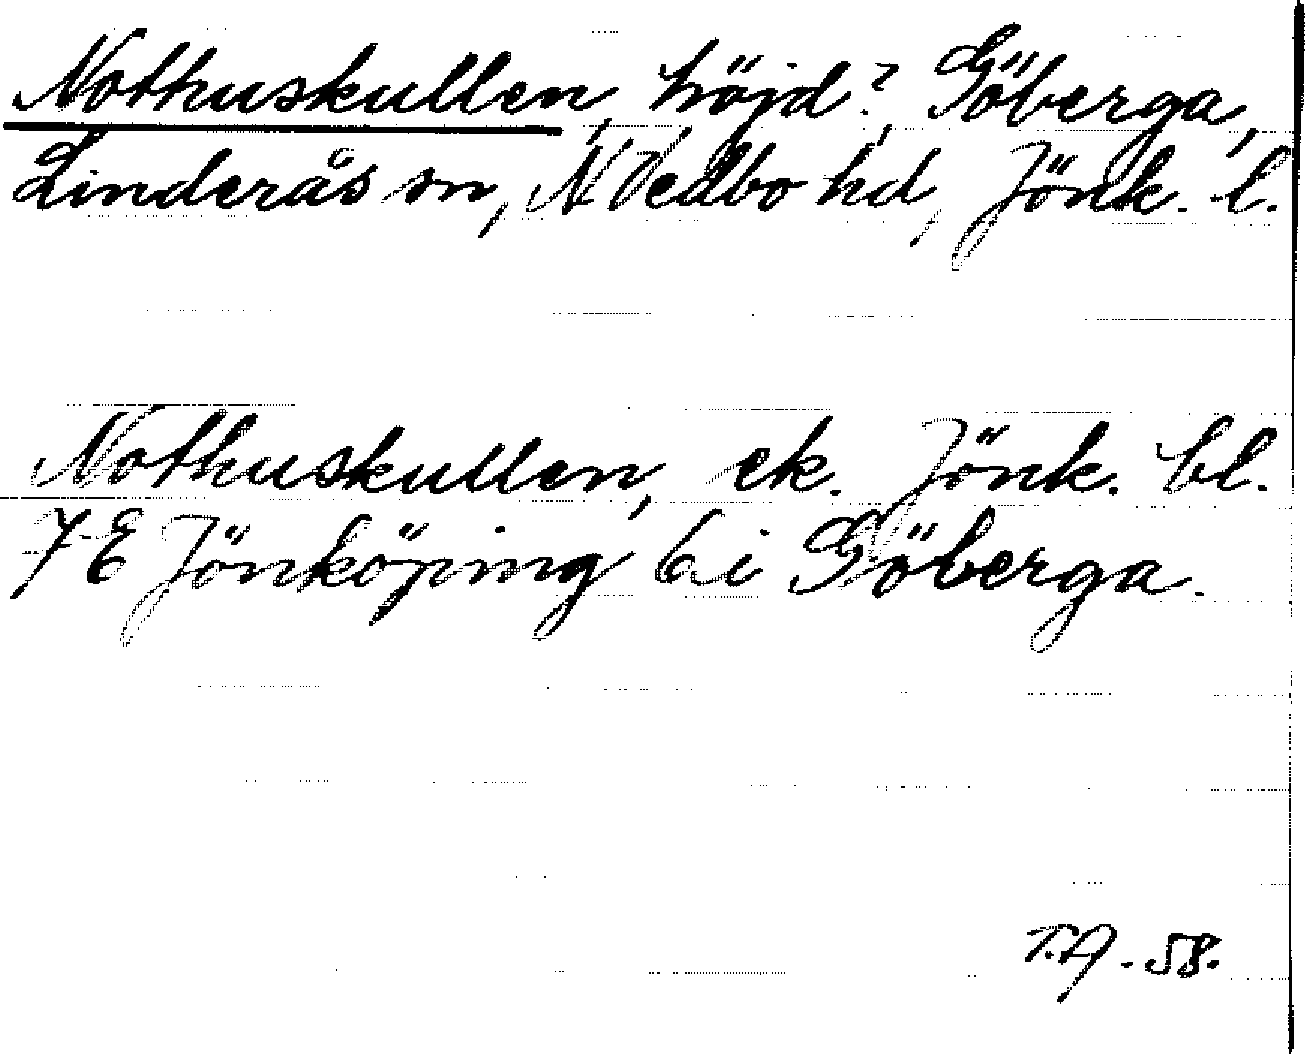 Nothuskullen, höjd?, Göberga,
Linderås sn, N Vedbo hd, Jönk. l.
Nothuskullen, ek. Jönk. bl.
7E Jönköping 6 i Göberga.
T.A. -58.